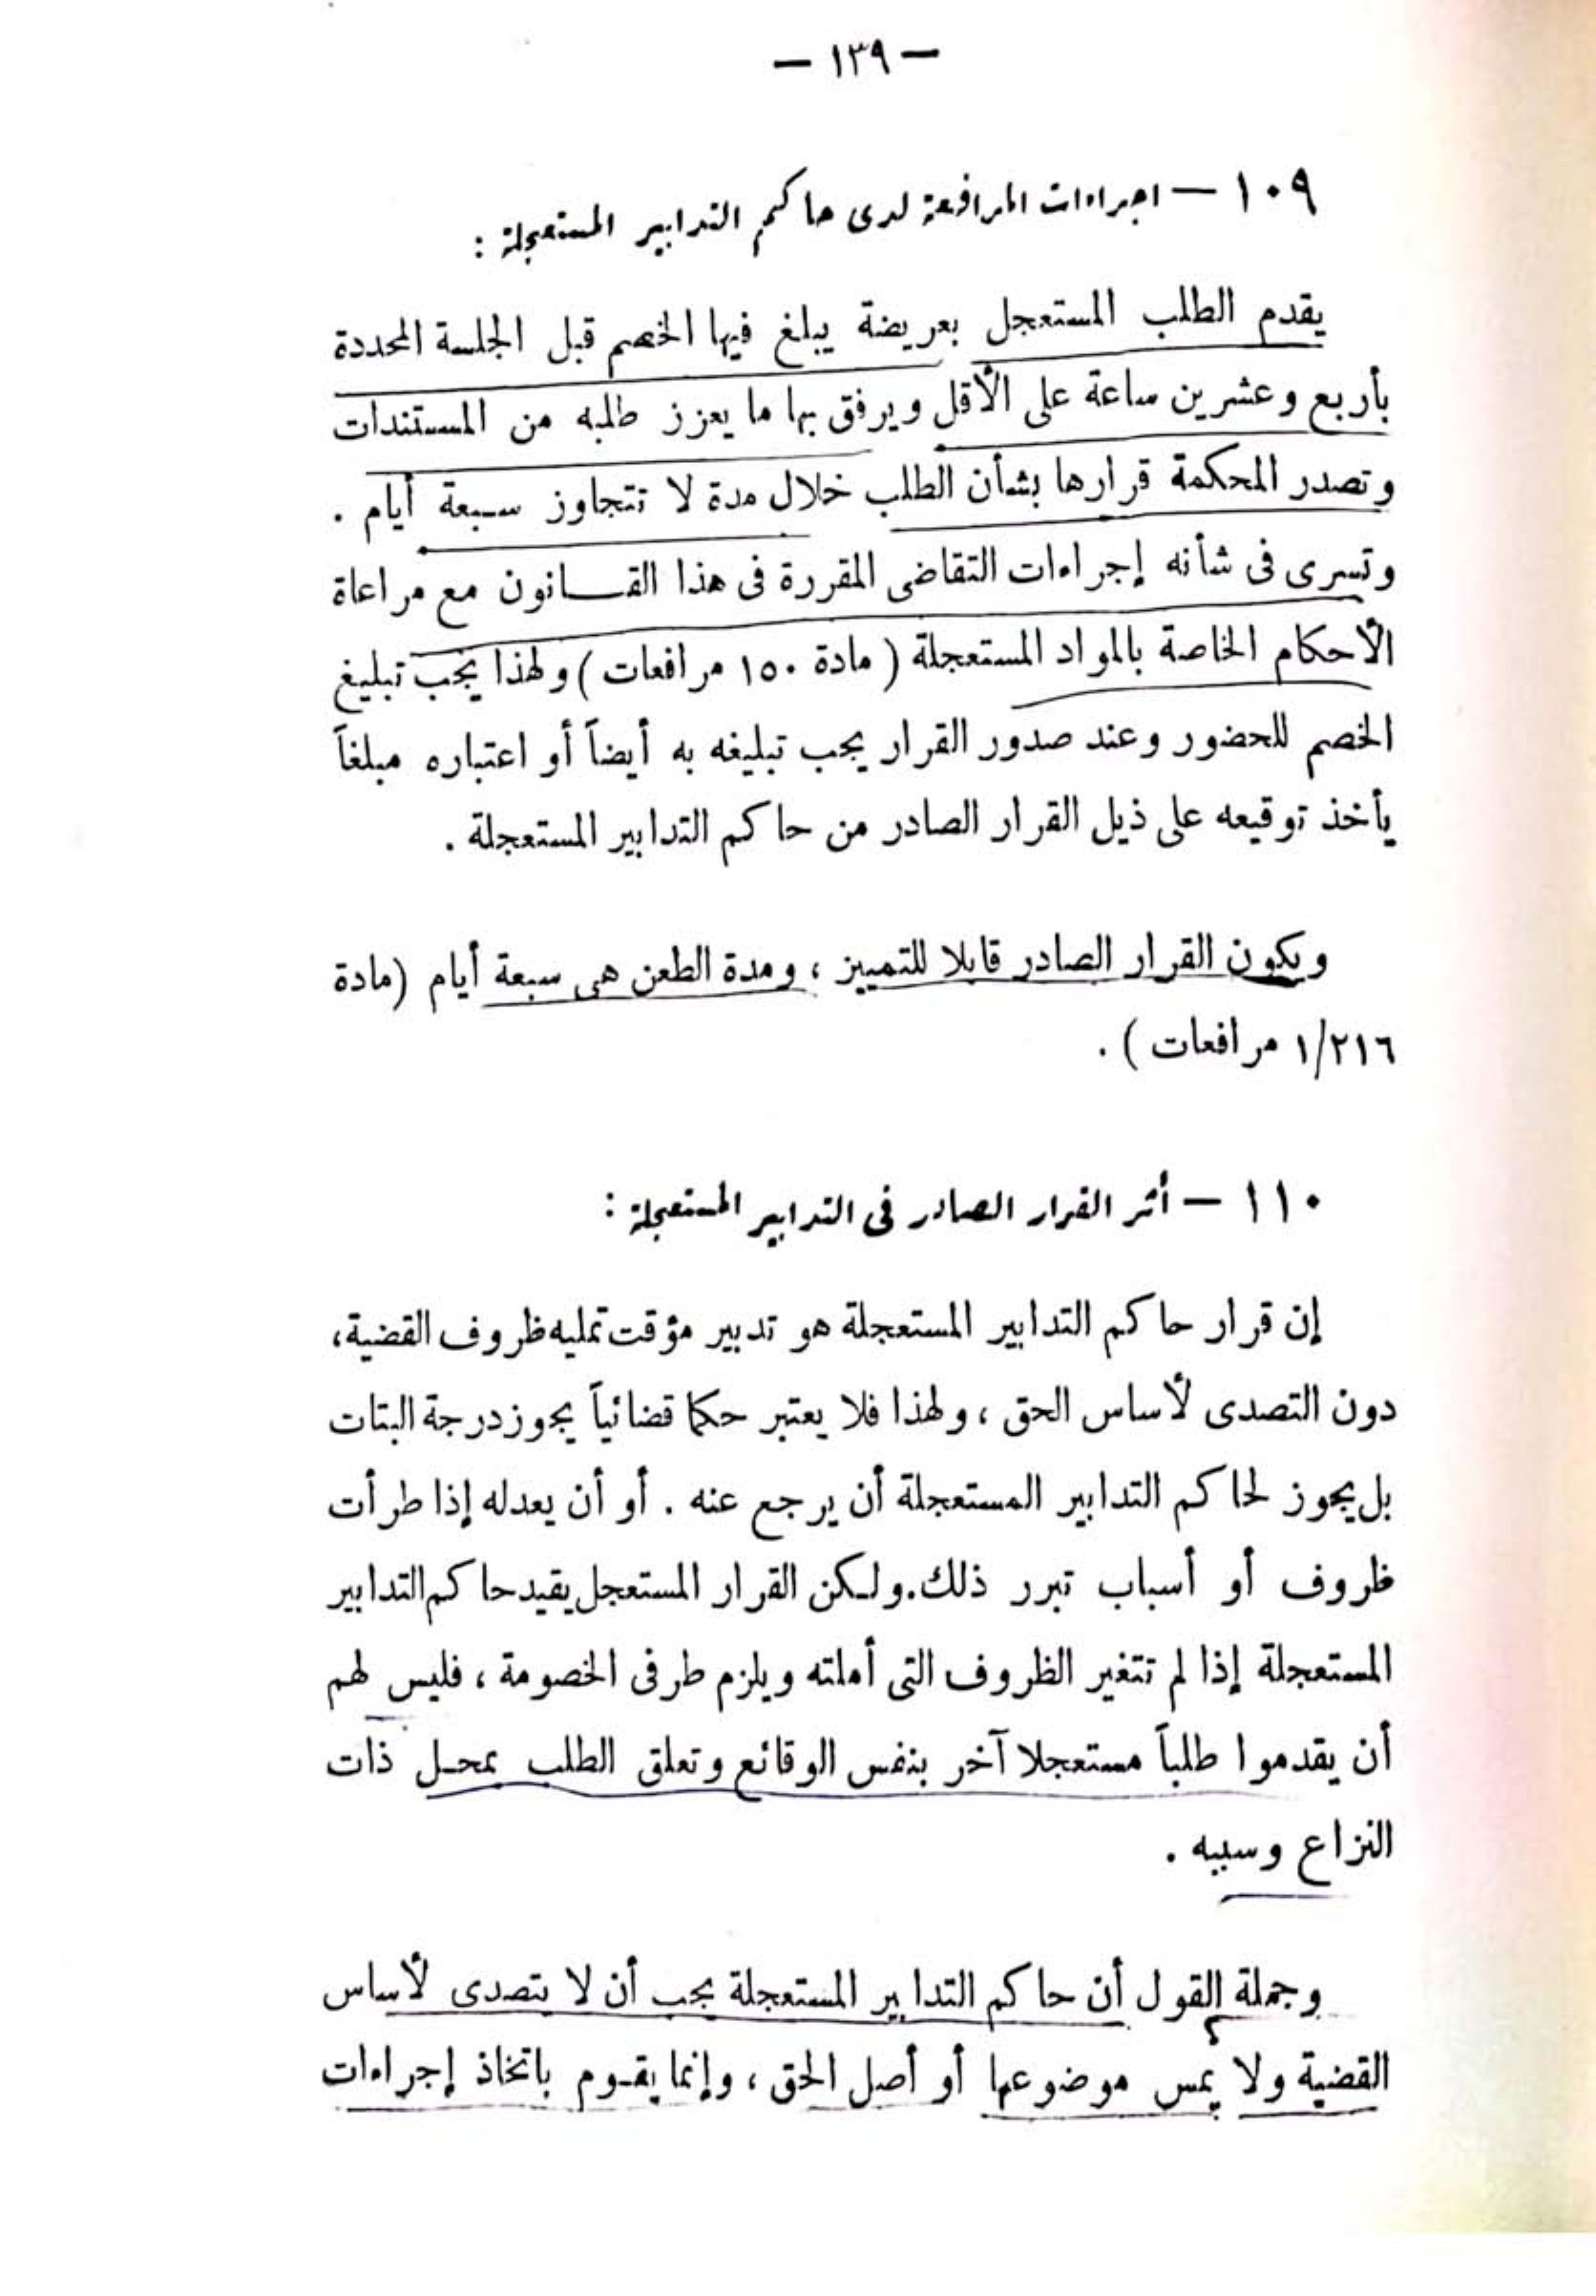 — ١٣٩ —
١٠٩ — اجراءات المرافعة لدى حاكم التدابير المستعجلة :
يقدم الطلب المستعجل بعريضة يبلغ فيها الخصم قبل الجلسة المحددة
بأربع وعشرين ساعة على الأقل ويرفق بها ما يعزز طلبه من المستندات
وتصدر المحكمة قرارها بشأن الطلب خلال مدة لا تتجاوز سبعة أيام .
وتسرى فى شأنه إجراءات التقاضى المقررة فى هذا القانون مع مراعاة
الأحكام الخاصة بالمواد المستعجلة ( مادة ١٥٠ مرافعات ) ولهذا يجب تبليغ
الخصم للحضور وعند صدور القرار يجب تبليغه به أيضاً أو اعتباره مبلغاً
يأخذ توقيعه على ذيل القرار الصادر من حاكم التدابير المستعجلة .
ويكون القرار الصادر قابلا للتمييز ، ومدة الطعن هى سبعة أيام (مادة
١/٢١٦ مرافعات ) .
١١٠ — أثر القرار الصادر فى التدابير المستعجلة :
إن قرار حاكم التدابير المستعجلة هو تدبير مؤقت تمليه ظروف القضية،
دون التصدى لأساس الحق ، ولهذا فلا يعتبر حكما قضائياً يجوز درجة البتات
بل يجوز لحاكم التدابير المستعجلة أن يرجع عنه . أو أن يعدله إذا طرأت
ظروف أو أسباب تبرر ذلك. ولكن القرار المستعجل يقيد حاكم التدابير
المستعجلة إذا لم تتغير الظروف التى أملته ويلزم طرفى الخصومة ، فليس لهم
أن يقدموا طلباً مستعجلا آخر بنفس الوقائع وتعلق الطلب بمحل ذات
النزاع وسببه .
وجملة القول أن حاكم التدابير المستعجلة يجب أن لا يتصدى لأساس
القضية ولا يمس موضوعها أو أصل الحق ، وإنما يقوم باتخاذ إجراءات